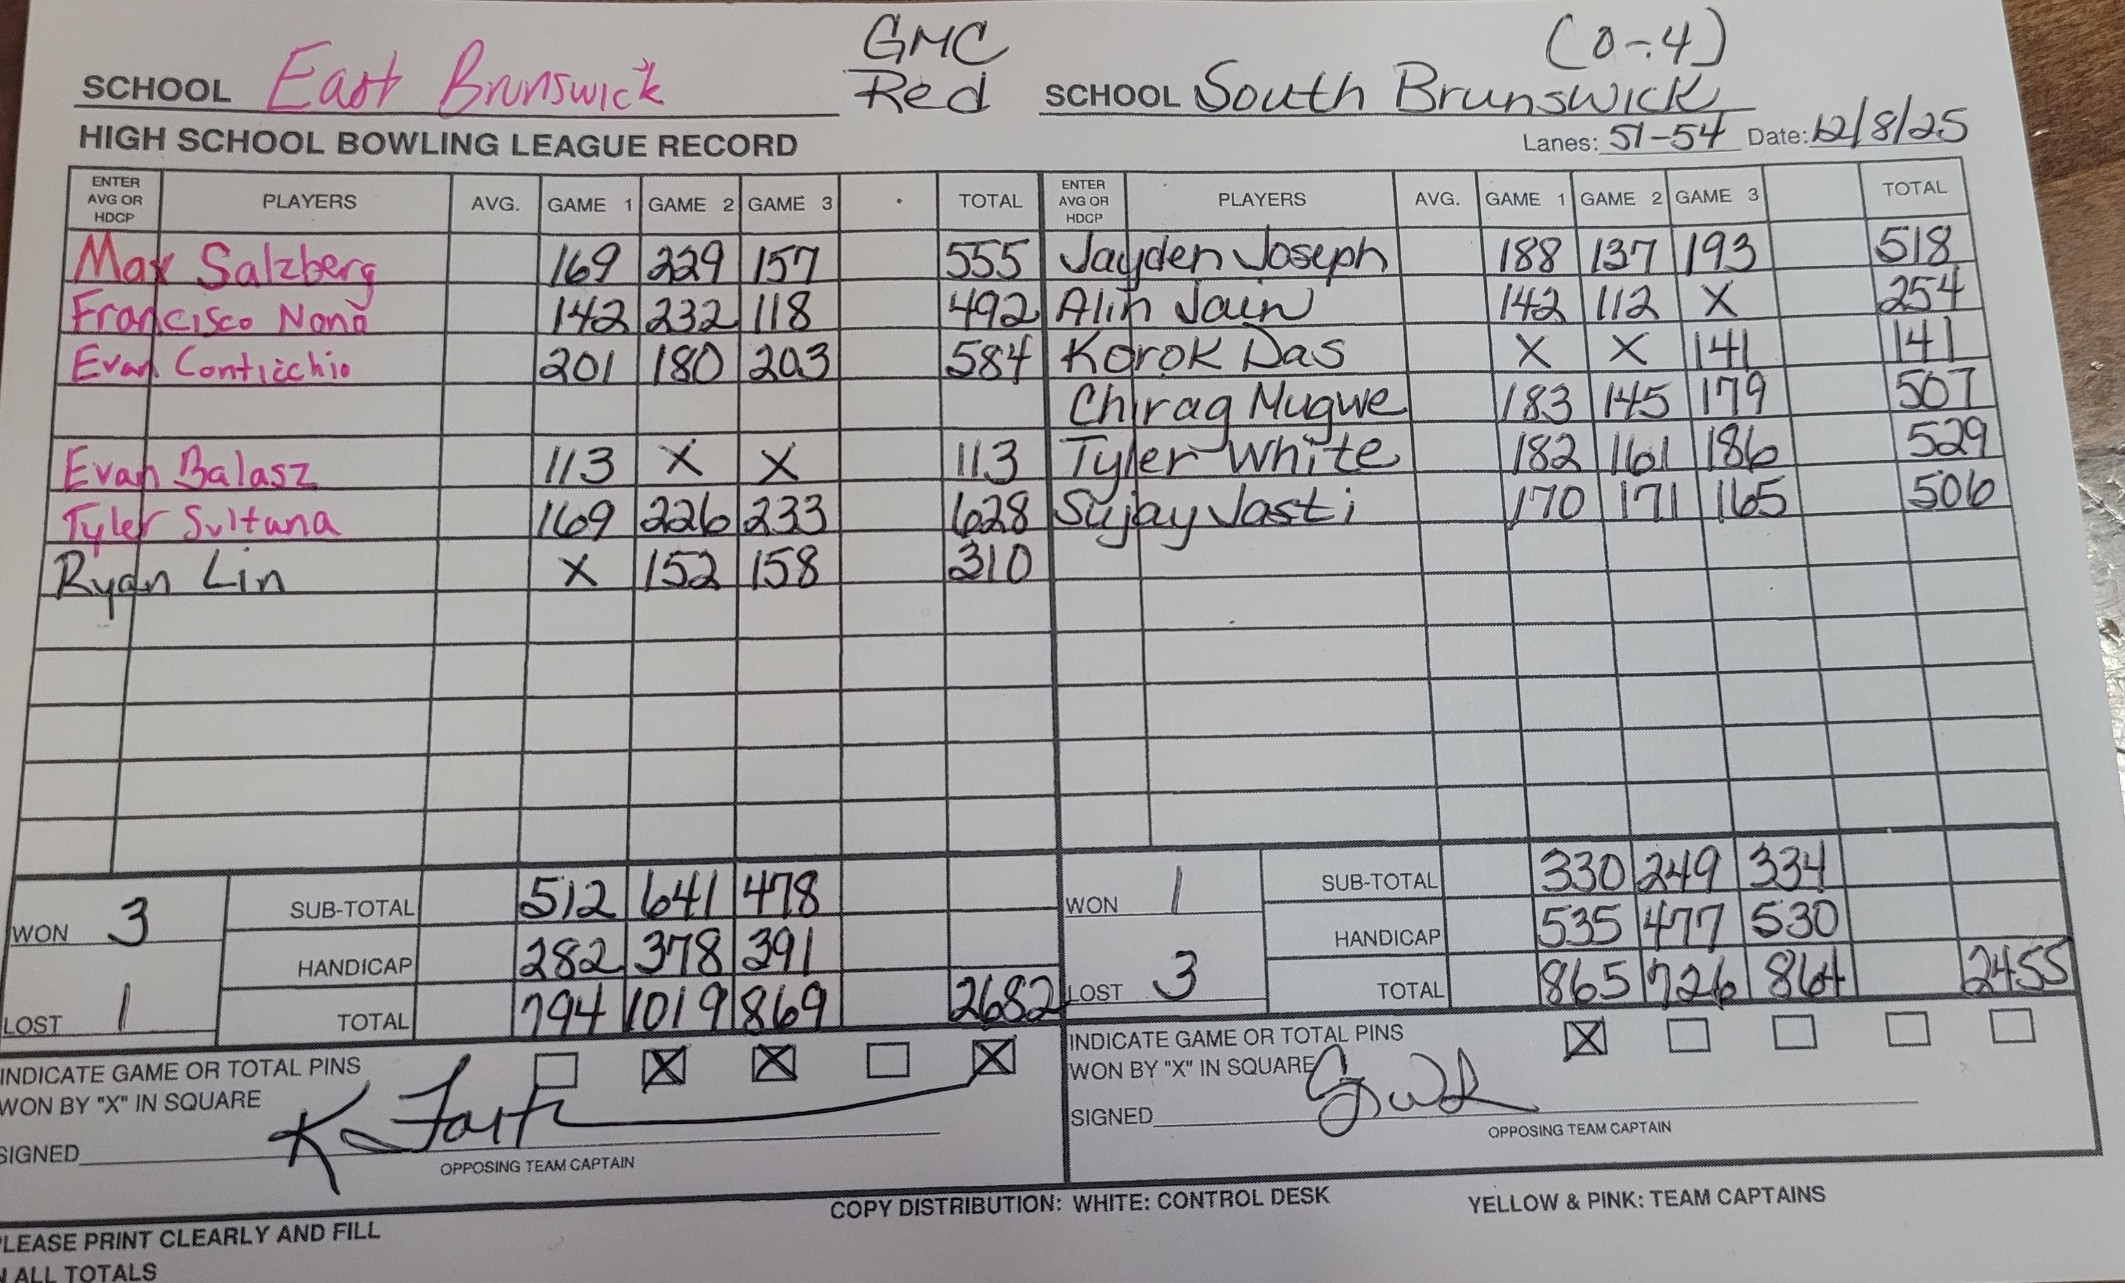 GMC
(0-4)
SCHOOL East Brunswick Red SCHOOL South Brunswick
HIGH SCHOOL BOWLING LEAGUE RECORD Lanes: 51-54 Date: 12/8/25
ENTER AVG OR HDCP PLAYERS AVG. GAME 1 GAME 2 GAME 3 TOTAL ENTER AVG OR HDCP PLAYERS AVG. GAME 1 GAME 2 GAME 3 TOTAL
Max Salzberg 169 229 157 555 Jayden Joseph 188 137 193 518
Francisco Nona 142 232 118 492 Alin Jain 142 112 X 254
Evan Conticchio 201 180 203 584 Korok Das X X 141 141
Chirag Mugwe 183 145 179 507
Evan Balasz 113 X X 113 Tyler White 182 161 186 529
Tyler Sultana 169 226 233 628 Sujay Jasti 170 171 165 506
Ryan Lin X 152 158 310
WON 3 SUB-TOTAL 512 641 478 WON 1 SUB-TOTAL 330 249 334
HANDICAP 282 378 391 HANDICAP 535 477 530
LOST 1 TOTAL 794 1019 869 2682 LOST 3 TOTAL 865 726 864 2455
INDICATE GAME OR TOTAL PINS X X X INDICATE GAME OR TOTAL PINS X
WON BY "X" IN SQUARE WON BY "X" IN SQUARE
SIGNED SIGNED
OPPOSING TEAM CAPTAIN OPPOSING TEAM CAPTAIN
COPY DISTRIBUTION: WHITE: CONTROL DESK YELLOW & PINK: TEAM CAPTAINS
PLEASE PRINT CLEARLY AND FILL
IN ALL TOTALS